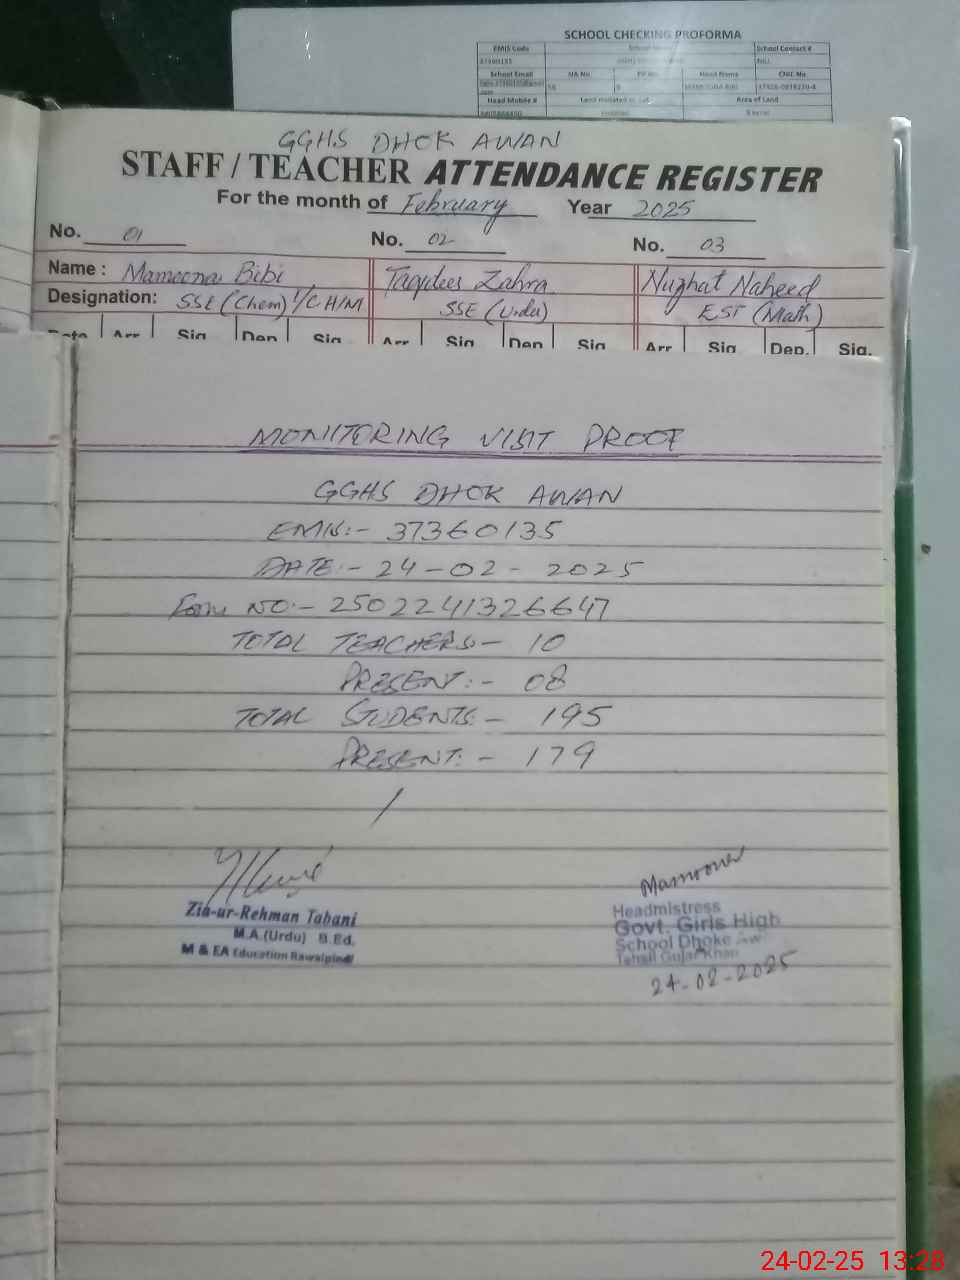 SCHOOL CHECKING PROFORMA
EMIS Code School School Contact #
37360135
School Email NA No Head Name CNIC No
Head Mobile # Area of Land
GGHS DHOK AWAN
STAFF / TEACHER ATTENDANCE REGISTER
For the month of February Year 2025
No. 01 No. 02 No. 03
Name : Mamoona Bibi Taqdees Zahra Nuzhat Naheed
Designation: SSE (Chem) I/C H/M SSE (Urdu) EST (Math)
Date Arr Sig Dep Sig. Arr Sig. Dep Sig. Arr Sig. Dep. Sig.
MONITORING VISIT PROOF
GGHS DHOK AWAN
EMIS:- 37360135
DATE:- 24-02-2025
Form NO:- 2502241326647
TOTAL TEACHERS:- 10
PRESENT:- 08
TOTAL STUDENTS:- 195
PRESENT:- 179
Zia-ur-Rehman Tabani
M.A.(Urdu) B.Ed.
M & EA Education Rawalpindi
Mamoona
Headmistress
Govt. Girls High
School Dhoke Aw
Tehsil Gujar Khan
24-02-2025
24-02-25 13:28